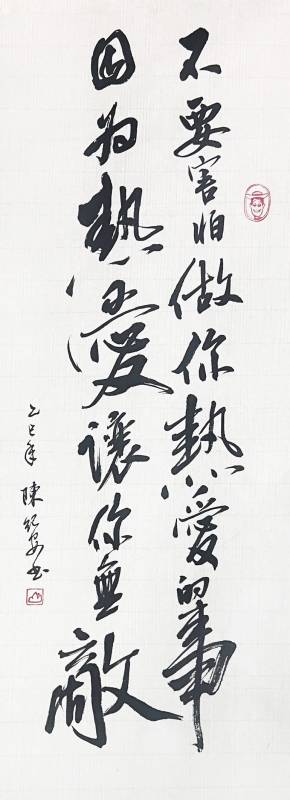 不要害怕做你熱愛的事
因为熱愛讓你無敵
乙巳年 陳紀安书